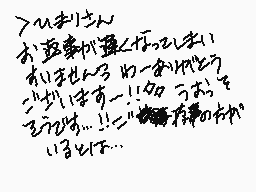 >ひまりさん
お返事が遅くなってしまい
すいませんう わーありがとう
ございます〜!!タタ うおっそ
そうです…!!ご 存事の方が
いるとは…